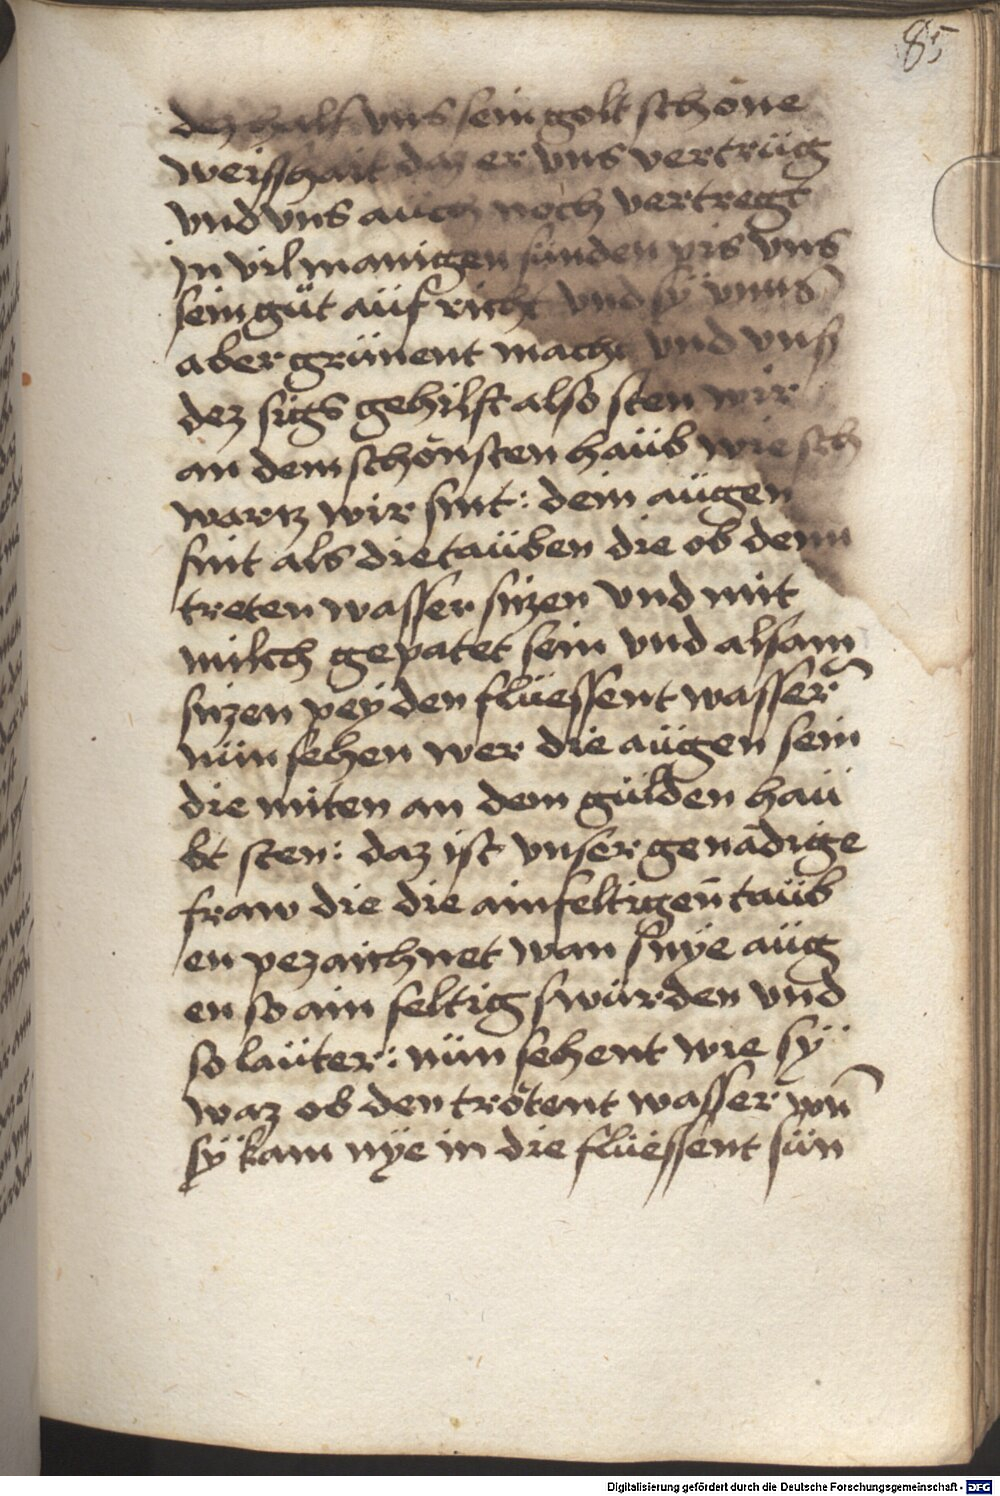 85
dez half vns sein golt schöne
weisshait daz er vns vertrüg
vnd vns aüch noch vertregt
jn vil manigen sünden pis vns
sein güt aüf richt vnd sÿ vnns
aber grünent macht vnd vns
dez sigs gehilft also sten wir
an dem schönsten haüb wie sch
wartz wir sint: dein aügen
sint als die taüben die ob denn
treten wasser sitzen vnd mit
milch gepatet sein vnd alsam
sitzen peÿ den flüessent wasser̄
nün sehen wer die aügen sein
die miten an dem gülden haü
bt sten: daz ist vnser genädige
fraw die die ainfeltigen̄ taüb
en pezaichnet wan nÿe aüg
en so ain feltig würden vnd
so laüter: nün sehent wie sÿ
waz ob den trötent wasser wn̄
sÿ kam nÿe in die flüessent sün
Digitalisierung gefördert durch die Deutsche Forschungsgemeinschaft - DFG